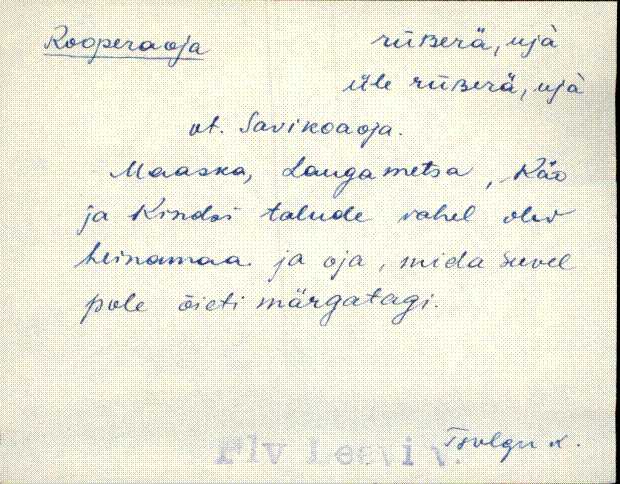 Rooperaoja
rüʙerä, ujà
üle rüʙerä, ujà
vt. Savikoaoja.
Maaska, Laugametsa, Käo
ja Kindsi talude vahel olev
heinamaa ja oja, mida suvel
pole õieti märgatagi.
Tsolgu k.